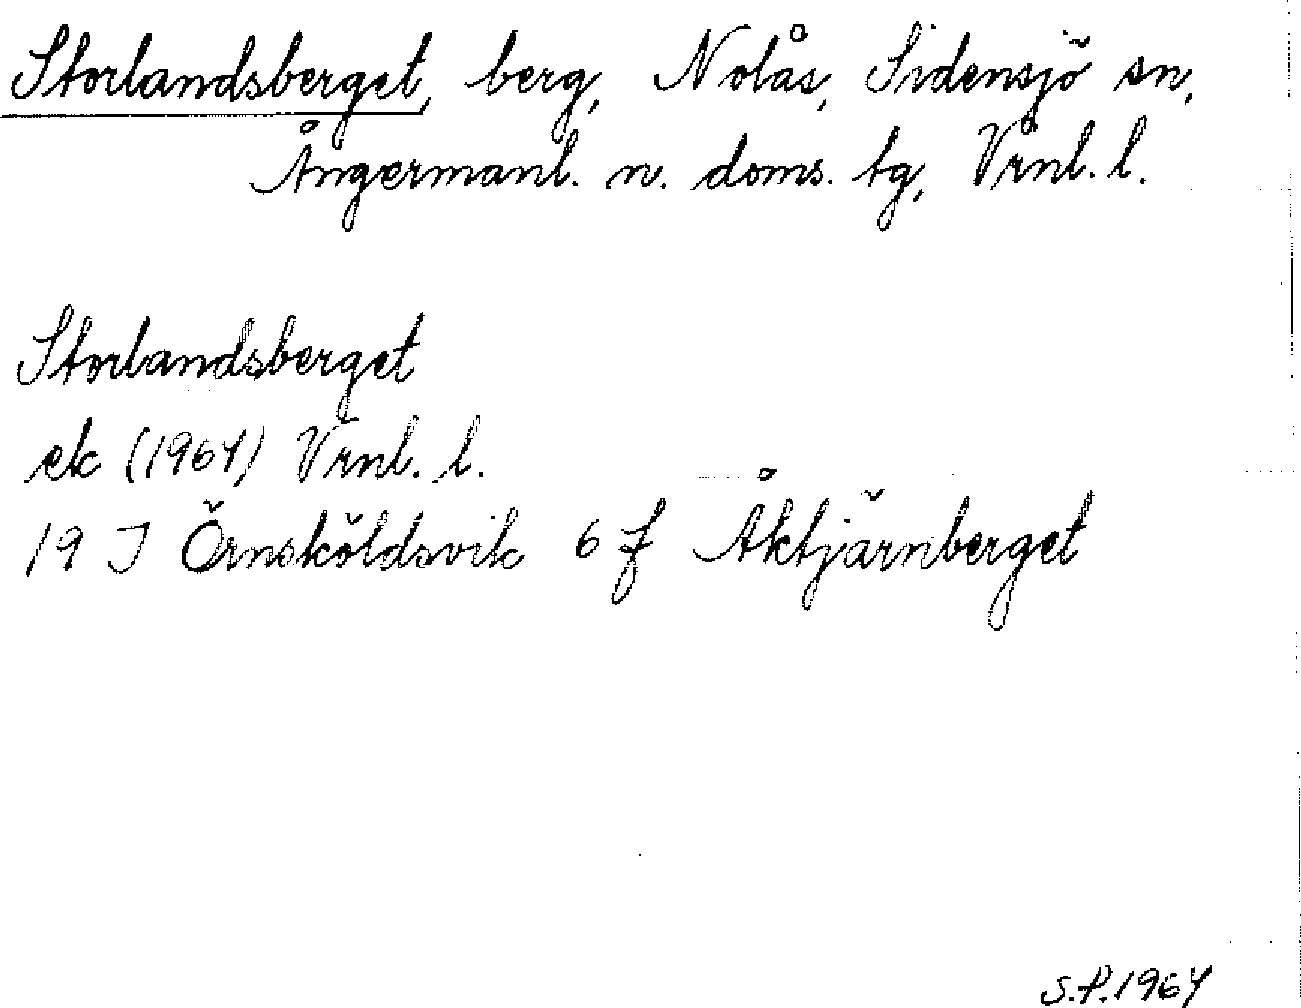 Storlandsberget, berg, Nolås, Sidensjö sn,
Ångermanl. n. doms. tg, Vrnl. l.
Storlandsberget
ek (1964) Vrnl. l.
19 J Örnsköldsvik 6 f Åktjärnberget
S.P. 1964